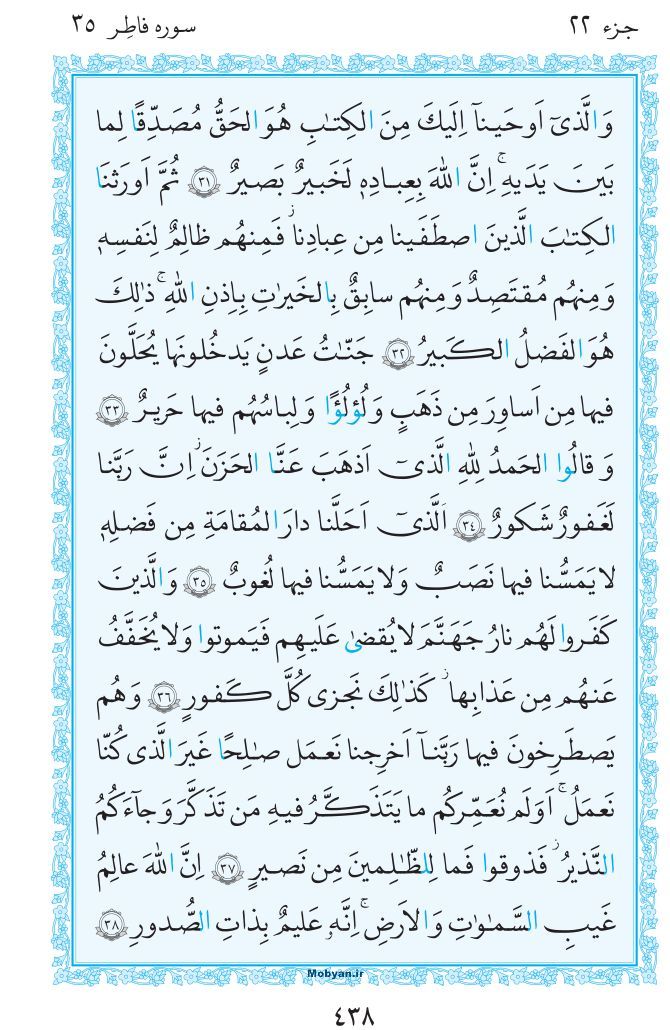 جزء ۲۲
سوره فاطِر ۳۵
وَالَّذىٓ اَوحَينآ اِلَيكَ مِنَ الكِتٰبِ هُوَ الحَقُّ مُصَدِّقًا لِما
بَينَ يَدَيهِ ۚ اِنَّ اللّٰهَ بِعِبادِهٖ لَخَبيرٌ بَصيرٌ ﴿٣١﴾ ثُمَّ اَورَثنَا
الكِتٰبَ الَّذينَ اصطَفَينا مِن عِبادِنا ۖ فَمِنهُم ظالِمٌ لِنَفسِهٖ
وَ مِنهُم مُقتَصِدٌ وَ مِنهُم سابِقٌ بِالخَيرٰتِ بِاِذنِ اللّٰهِ ۚ ذٰلِكَ
هُوَ الفَضلُ الكَبيرُ ﴿٣٢﴾ جَنّٰتُ عَدنٍ يَدخُلونَها يُحَلَّونَ
فيها مِن اَساوِرَ مِن ذَهَبٍ وَ لُؤلُؤًا وَ لِباسُهُم فيها حَريرٌ ﴿٣٣﴾
وَ قالُوا الحَمدُ لِلّٰهِ الَّذىٓ اَذهَبَ عَنَّا الحَزَنَ ۖ اِنَّ رَبَّنا
لَغَفورٌ شَكورٌ ﴿٣٤﴾ اَلَّذىٓ اَحَلَّنا دارَ المُقامَةِ مِن فَضلِهٖ
لا يَمَسُّنا فيها نَصَبٌ وَلا يَمَسُّنا فيها لُغوبٌ ﴿٣٥﴾ وَالَّذينَ
كَفَروا لَهُم نارُ جَهَنَّمَ لا يُقضىٰ عَلَيهِم فَيَموتوا وَلا يُخَفَّفُ
عَنهُم مِن عَذابِها ۚ كَذٰلِكَ نَجزى كُلَّ كَفورٍ ﴿٣٦﴾ وَ هُم
يَصطَرِخونَ فيها رَبَّنآ اَخرِجنا نَعمَل صٰلِحًا غَيرَ الَّذى كُنّا
نَعمَلُ ۚ اَوَلَم نُعَمِّركُم ما يَتَذَكَّرُ فيهِ مَن تَذَكَّرَ وَ جآءَكُمُ
النَّذيرُ ۖ فَذوقوا فَما لِلظّٰلِمينَ مِن نَصيرٍ ﴿٣٧﴾ اِنَّ اللّٰهَ عالِمُ
غَيبِ السَّمٰوٰتِ وَالاَرضِ ۚ اِنَّهٗ عَليمٌ بِذاتِ الصُّدورِ ﴿٣٨﴾
Mobyan.ir
٤٣٨